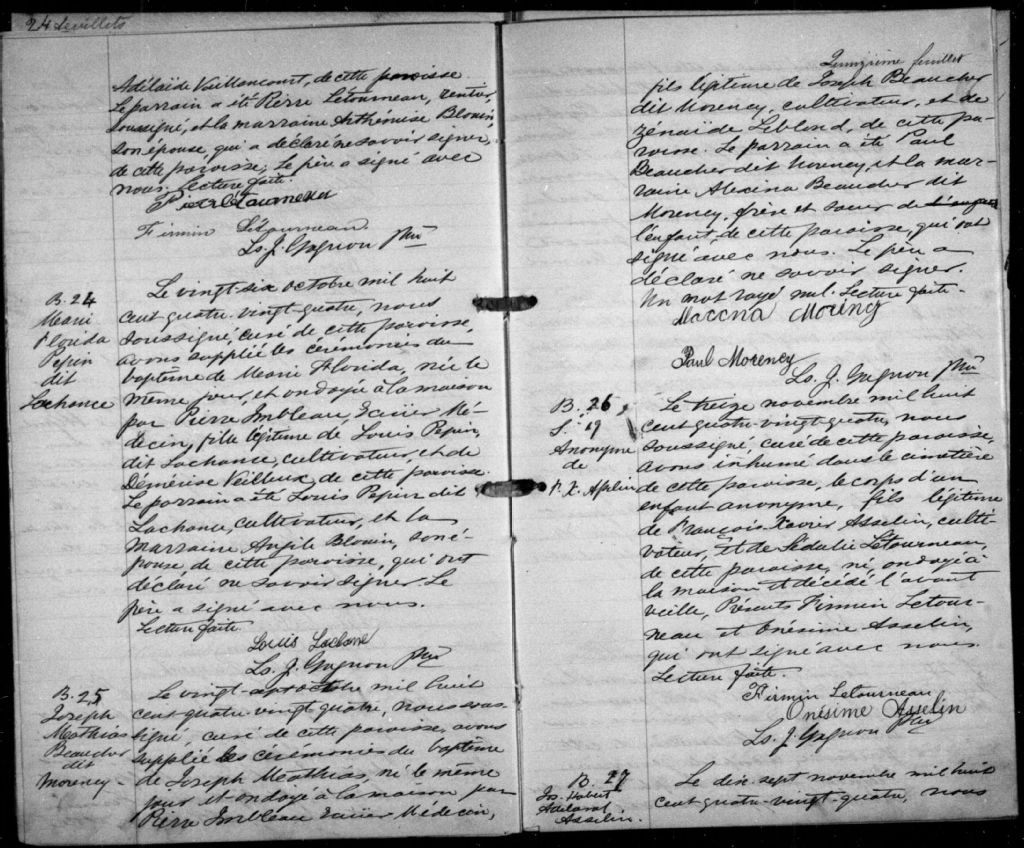 24 feuillets
Adélaïde Vaillancourt, de cette paroisse.
Le parrain a été Pierre Létourneau, rentier,
soussigné, et la marraine Arthémise Blouin
son épouse, qui a déclaré ne savoir signer,
de cette paroisse. Le père a signé avec
nous. Lecture faite.
Pierre Létourneau
Firmin Létourneau
Ls. J. Gagnon Ptre
B. 24
Marie
Florida
Pepin
dit
Lachance
Le vingt-six octobre mil huit
cent quatre-vingt-quatre, nous
soussigné, curé de cette paroisse,
avons supplié les cérémonies du
baptême de Marie Florida, née le
même jour, et ondoyée à la maison
par Pierre Imbleau, Médecin, fille légitime de Louis Pepin,
dit Lachance, cultivateur, et de
Démérise Veilleux, de cette paroisse.
Le parrain a été Louis Pepin dit
Lachance, cultivateur, et la
marraine Angèle Blouin, son é-
pouse, de cette paroisse, qui ont
déclaré ne savoir signer. Le
père a signé avec nous.
Lecture faite.
Louis Lachance
Ls. J. Gagnon Ptre
B. 25
Joseph
Mathias
Beaucher
dit
Morency
Le vingt-sept octobre mil huit
cent quatre-vingt-quatre, nous sous-
signé, curé de cette paroisse, avons
supplié les cérémonies du baptême
de Joseph Mathias, né le même
jour et ondoyé à la maison par
Pierre Imbleau Médecin,
Quinzième feuillet
fils légitime de Joseph Beaucher
dit Morency, cultivateur, et de
Zénaïde Leblond, de cette pa-
roisse. Le parrain a été Paul
Beaucher dit Morency, et la mar-
raine Alexina Beaucher dit
Morency, frère et sœur de
l'enfant, de cette paroisse, qui ont
signé avec nous. Le père a
déclaré ne savoir signer.
Un mot rayé nul. Lecture faite.
Morency
Paul Morency
Ls. J. Gagnon Ptre
B. 26
S. 19
Anonyme
de
F. X. Asselin
Le treize novembre mil huit
cent quatre-vingt-quatre, nous
soussigné, curé de cette paroisse,
avons inhumé dans le cimetière
de cette paroisse, le corps d'un
enfant anonyme, fils légitime
de François-Xavier Asselin, culti-
vateur, et de Sédulie Létourneau,
de cette paroisse, né, ondoyé à
la maison et décédé l'avant
veille, Présents Firmin Létour-
neau et Onésime Asselin,
qui ont signé avec nous.
Lecture faite.
Firmin Letourneau
Onésime Asselin
Ls. J. Gagnon Ptre
B. 27
Jos. Hubert
Adélard
Asselin.
Le dix-sept novembre mil huit
cent quatre-vingt-quatre, nous